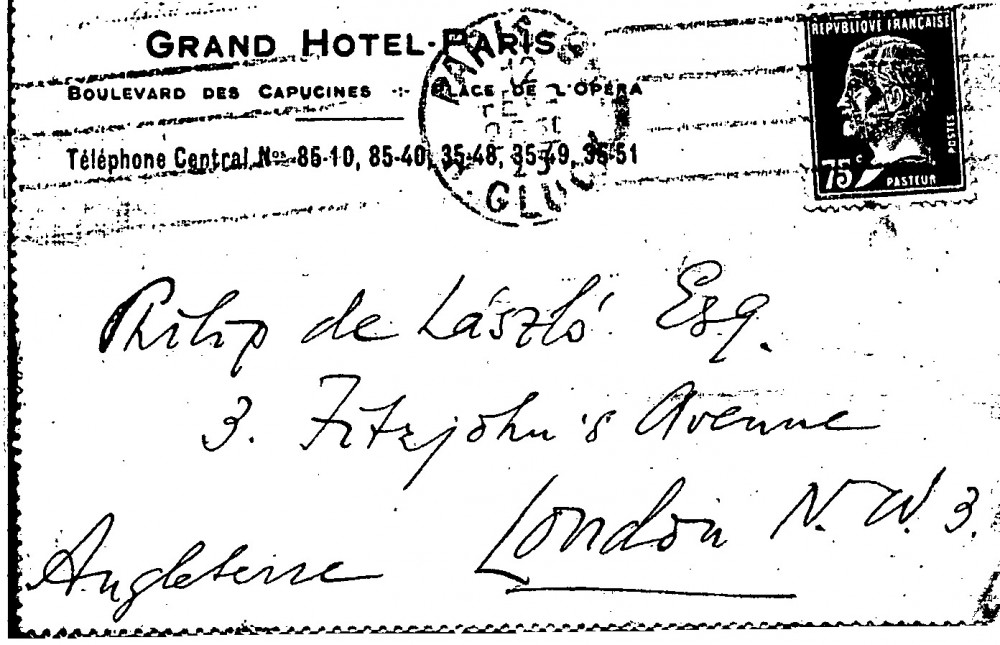 GRAND HOTEL-PARIS
BOULEVARD DES CAPUCINES -:- PLACE DE L'OPÉRA
Téléphone Central Nos 86-10, 85-40, 35-48, 35-49, 35-51
PARIS
GLUCK
REPVBLIQVE FRANÇAISE
POSTES
75c
PASTEUR
Philip de László Esq.
3. Fitzjohn's Avenue
London N.W.3.
Angleterre